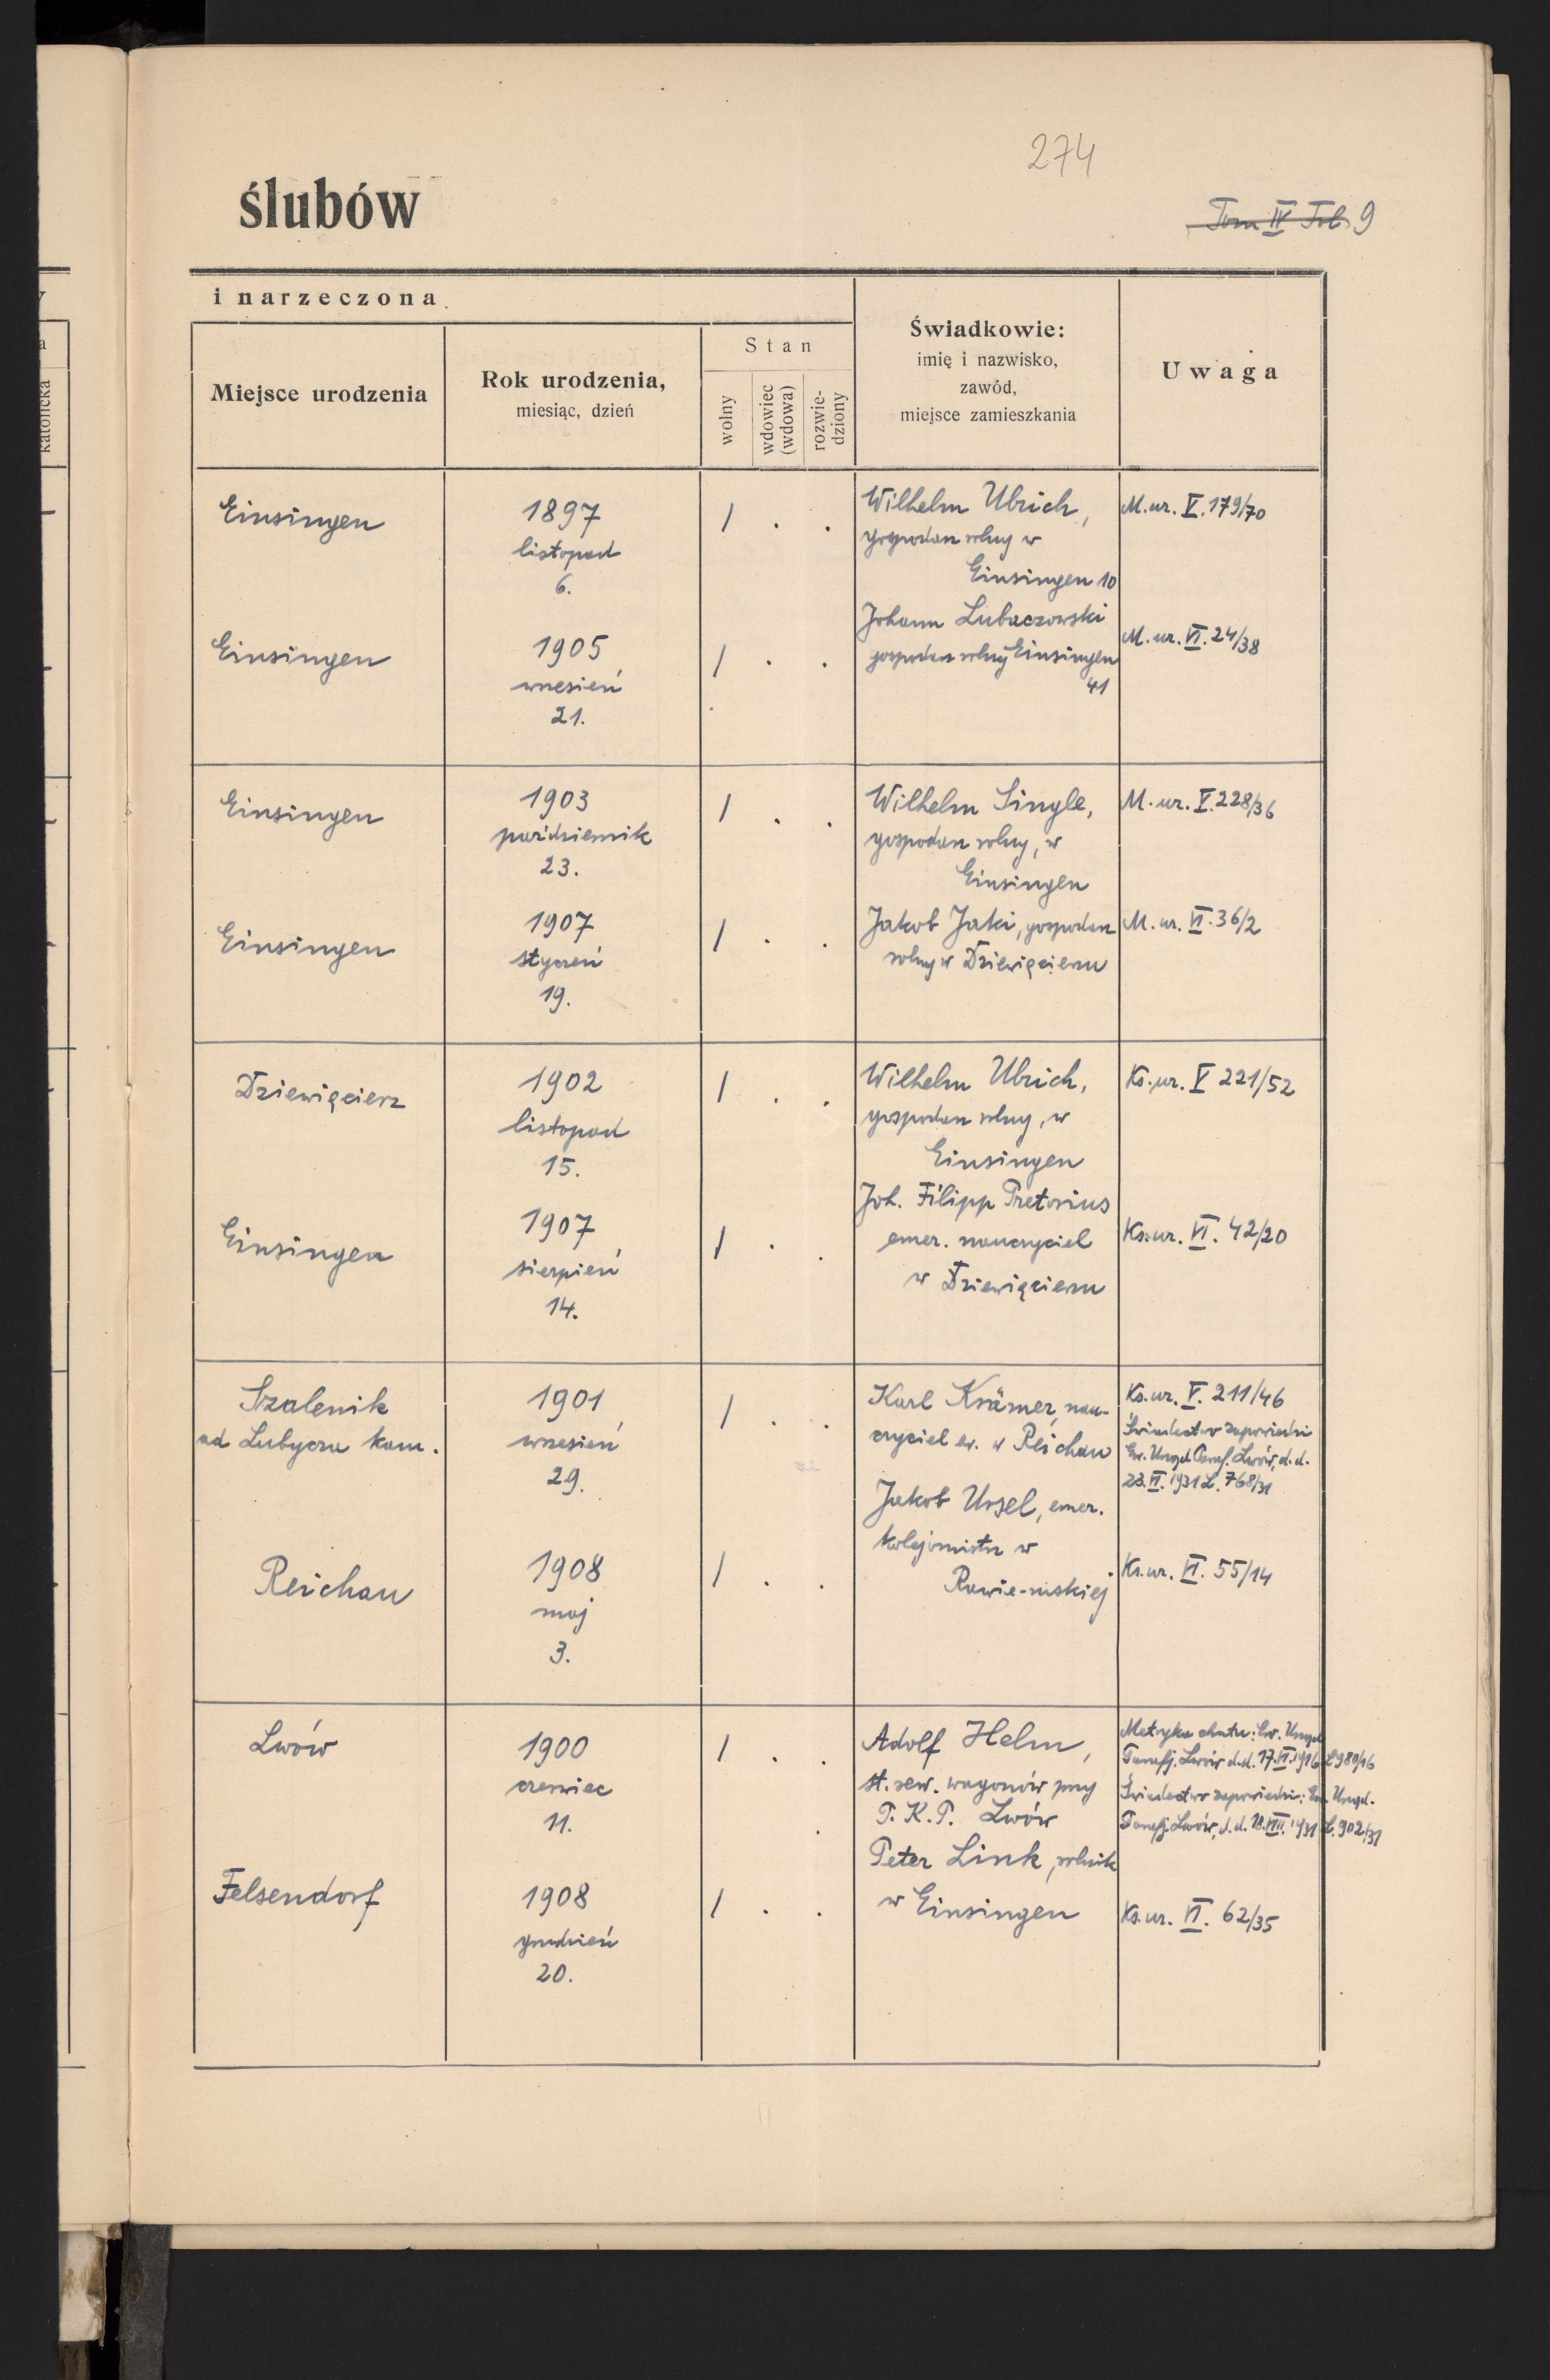 274
ślubów
Tom IV Fol. 9
i narzeczona
Miejsce urodzenia
Rok urodzenia,
miesiąc, dzień
Stan
wolny
wdowiec
(wdowa)
rozwie-
dziony
Świadkowie:
imię i nazwisko,
zawód,
miejsce zamieszkania
Uwaga
katolicka
Einsingen
1897
listopad
6.
/ . .
Wilhelm Ulrich,
gospodarz rolny w
Einsingen 10
M. ur. V. 179/70
Einsingen
1905
wrzesień
21.
/ . .
Johann Lubaczowski
gospodarz rolny Einsingen
41
M. ur. VI. 24/38
Einsingen
1903
październik
23.
/ . .
Wilhelm Single,
gospodarz rolny, w
Einsingen
M. ur. V. 228/36
Einsingen
1907
styczeń
19.
/ . .
Jakob Jaki, gospodarz
rolny w Dziewięcierzu
M. ur. VI. 36/2
Dziewięcierz
1902
listopad
15.
/ . .
Wilhelm Ulrich,
gospodarz rolny, w
Einsingen
Ks. ur. V 221/52
Einsingen
1907
sierpień
14.
/ . .
Joh. Filipp Pretorius
emer. nauczyciel
w Dziewięcierzu
Ks. ur. VI. 42/20
Szalenik
ad Lubycza kam.
1901
wrzesień
29.
/ . .
Karl Krämer, nau-
czyciel ew. w Reichau
Ks. ur. V. 211/46
Świadectwo zapowiedzi
Ew. Urząd Paraf. Lwów, d. d.
23. VI. 1931 L. 768/31
Reichau
1908
maj
3.
/ . .
Jakob Ursel, emer.
kolejomistrz w
Rawie-ruskiej
Ks. ur. VI. 55/14
Lwów
1900
czerwiec
11.
/ . .
Adolf Helm,
st. rew. wagonów przy
P. K. P. Lwów
Metryka chrztu: Ew. Urząd
Parafj. Lwów d. d. 17. VI. 1916 L 980/16
Świadectwo zapowiedzi: Ew. Urząd.
Parafj. Lwów, d. d. 18. VIII. 1931 L. 902/31
Felsendorf
1908
grudzień
20.
/ . .
Peter Link, rolnik
w Einsingen
Ks. ur. VI. 62/35